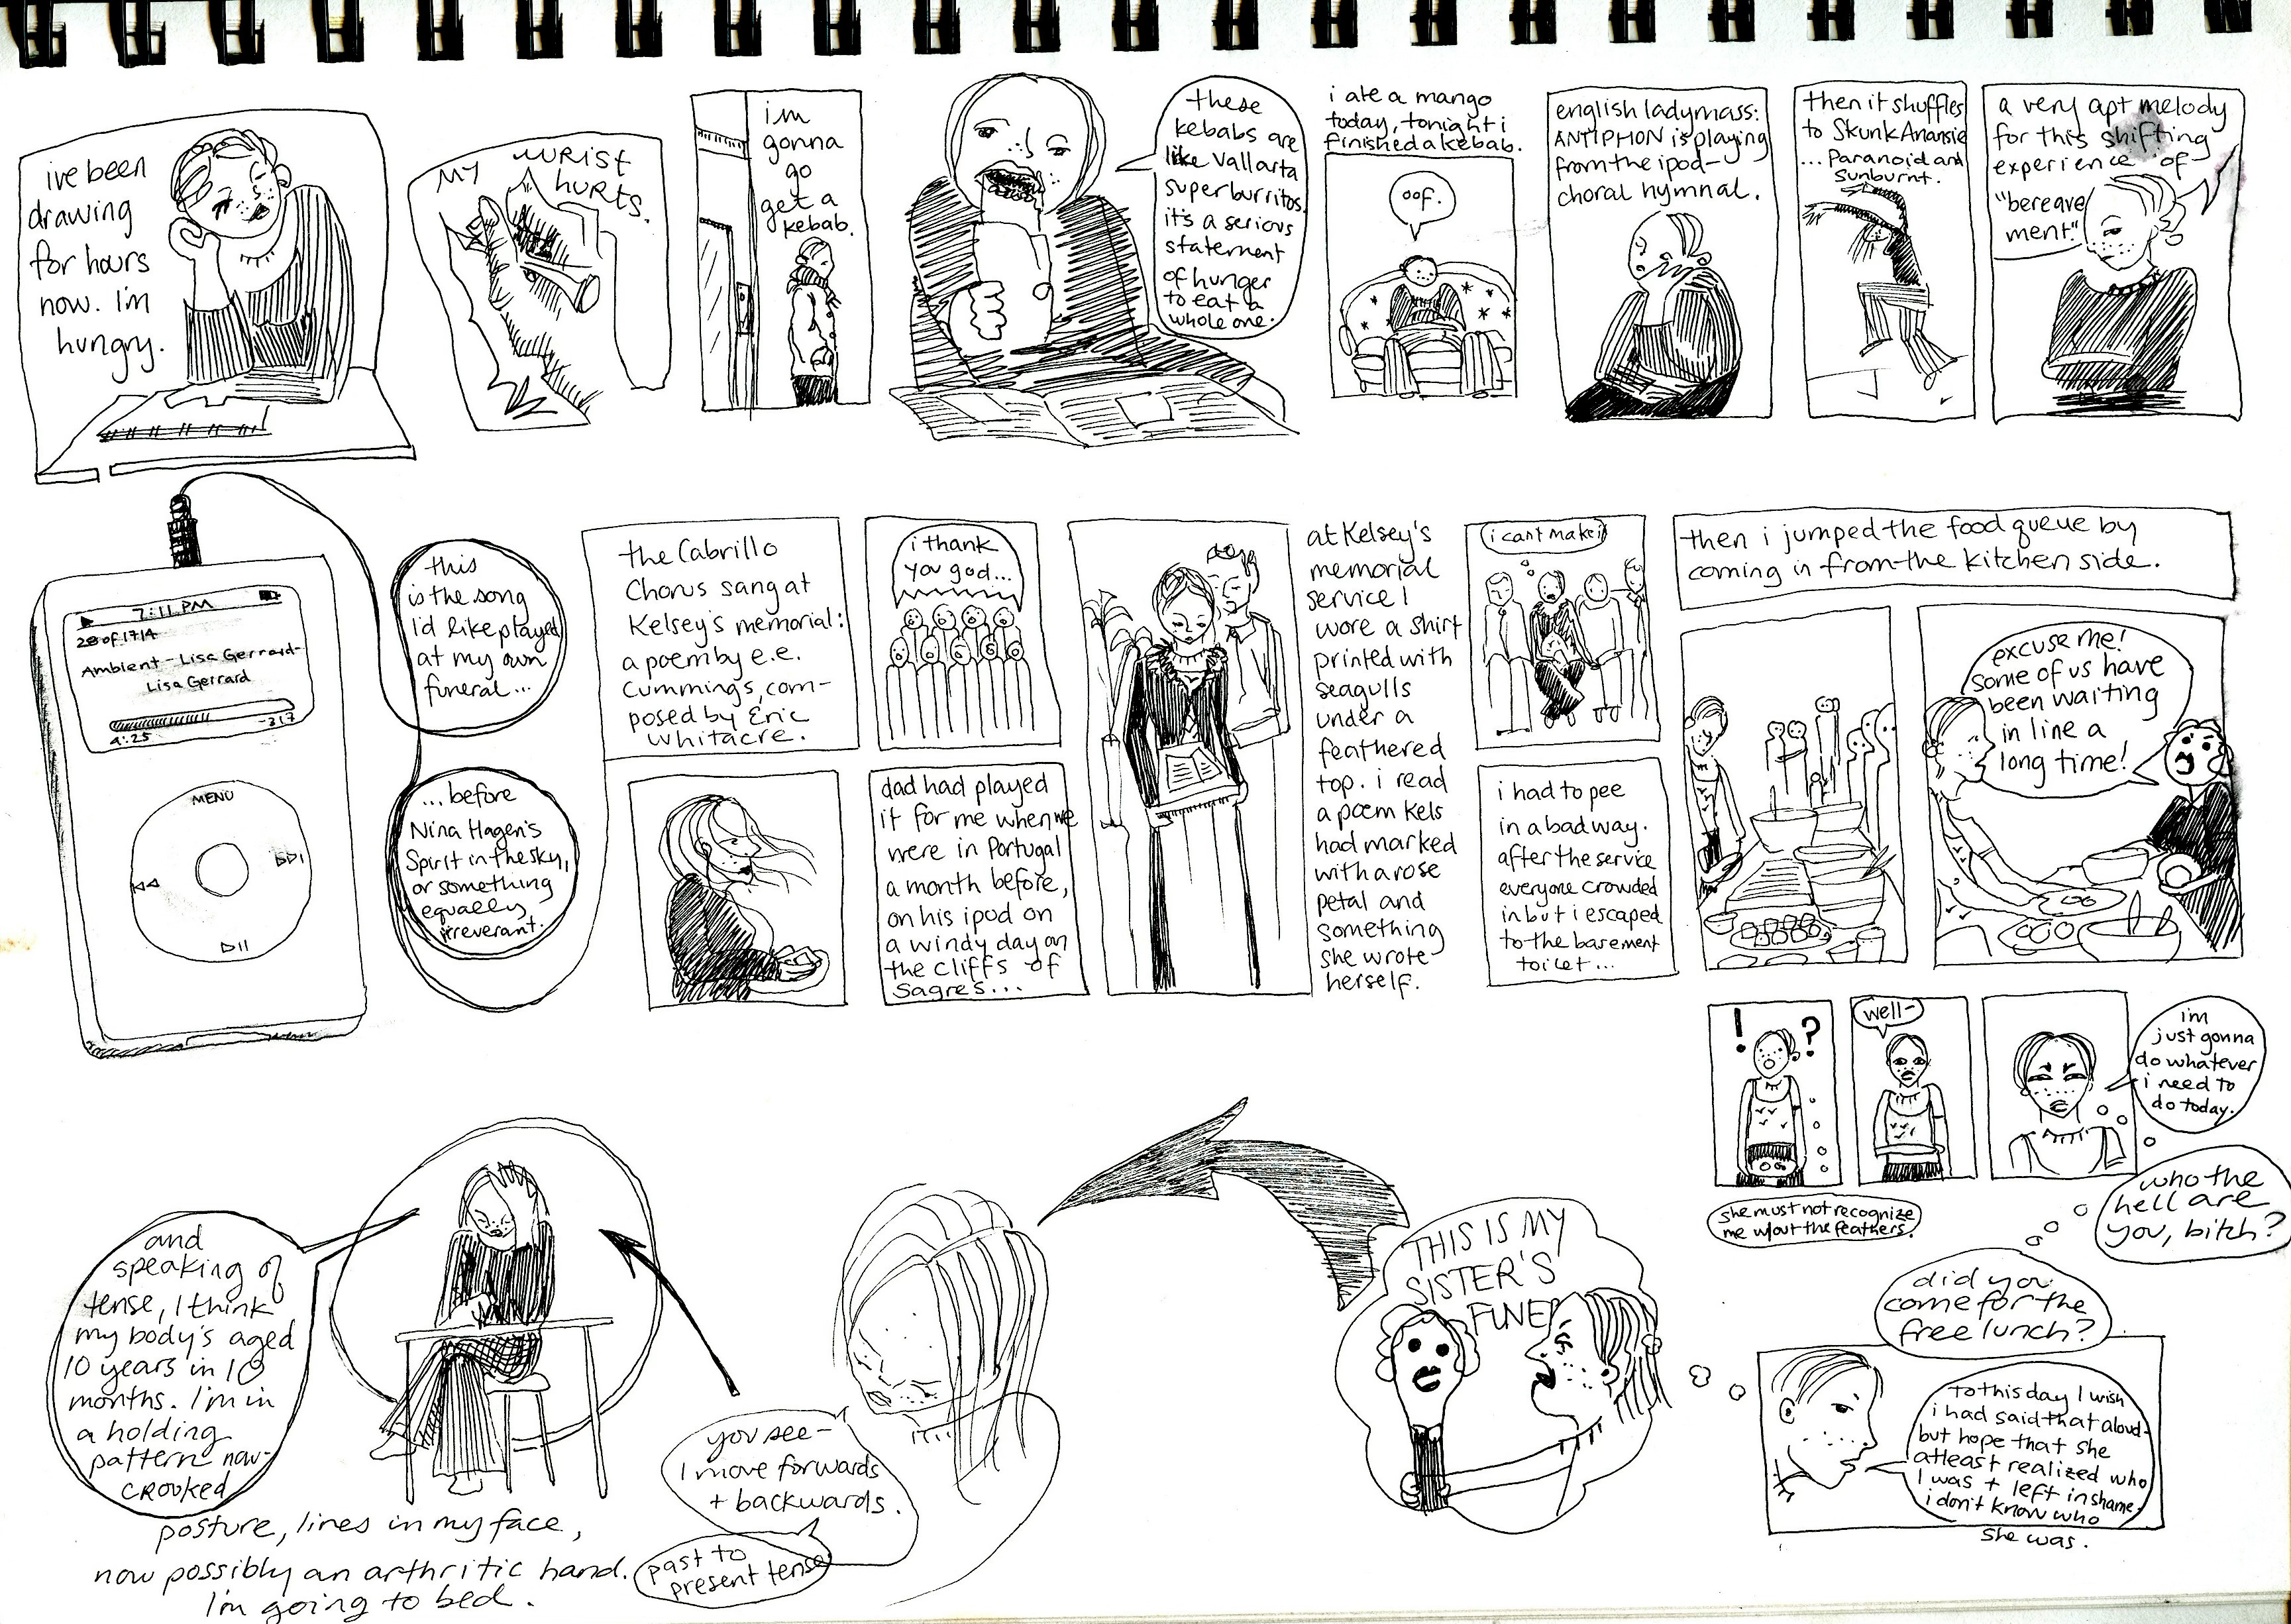 ive been
drawing
for hours
now. I'm
hungry.
MY WRIST
HURTS.
i'm
gonna
go
get a
kebab.
these
kebabs are
like Vallarta
superburritos.
it's a serious
statement
of hunger
to eat a
whole one.
i ate a mango
today, tonight i
finished a kebab.
oof.
english ladymass:
ANTIPHON is playing
from the ipod-
choral hymnal.
then it shuffles
to Skunk Anansie
... Paranoid and
Sunburnt.
a very apt melody
for this shifting
experience of-
"bereave
ment."
7:11 PM
28 of 1714
Ambient - Lisa Gerrard-
Lisa Gerrard
4:25
-3:17
MENU
this
is the song
I'd like played
at my own
funeral...
...before
Nina Hagen's
Spirit in the sky,
or something
equally
irreverant.
the Cabrillo
Chorus sang at
Kelsey's memorial:
a poem by e.e.
cummings, com-
posed by Eric
Whitacre.
i thank
you god...
dad had played
it for me when we
were in Portugal
a month before,
on his ipod on
a windy day on
the cliffs of
Sagres...
at Kelsey's
memorial
service I
wore a shirt
printed with
seagulls
under a
feathered
top. i read
a poem Kels
had marked
with a rose
petal and
something
she wrote
herself.
i cant make it
i had to pee
in a bad way.
after the service
everyone crowded
in but i escaped
to the basement
toilet...
then i jumped the food queue by
coming in from the kitchen side.
excuse me!
some of us have
been waiting
in line a
long time!
! ?
she must not recognize
me w/out the feathers.
well-
i'm
just gonna
do whatever
i need to
do today.
who the
hell are
you, bitch?
did you
come for the
free lunch?
to this day I wish
i had said that aloud-
but hope that she
atleast realized who
I was + left in shame.
i don't know who
she was.
THIS IS MY
SISTER'S
FUNER
you see-
I move forwards
+ backwards.
past to
present tense
and
speaking of
tense, I think
my body's aged
10 years in 10
months. I'm in
a holding
pattern now-
CROOKED
posture, lines in my face,
now possibly an arthritic hand.
I'm going to bed.